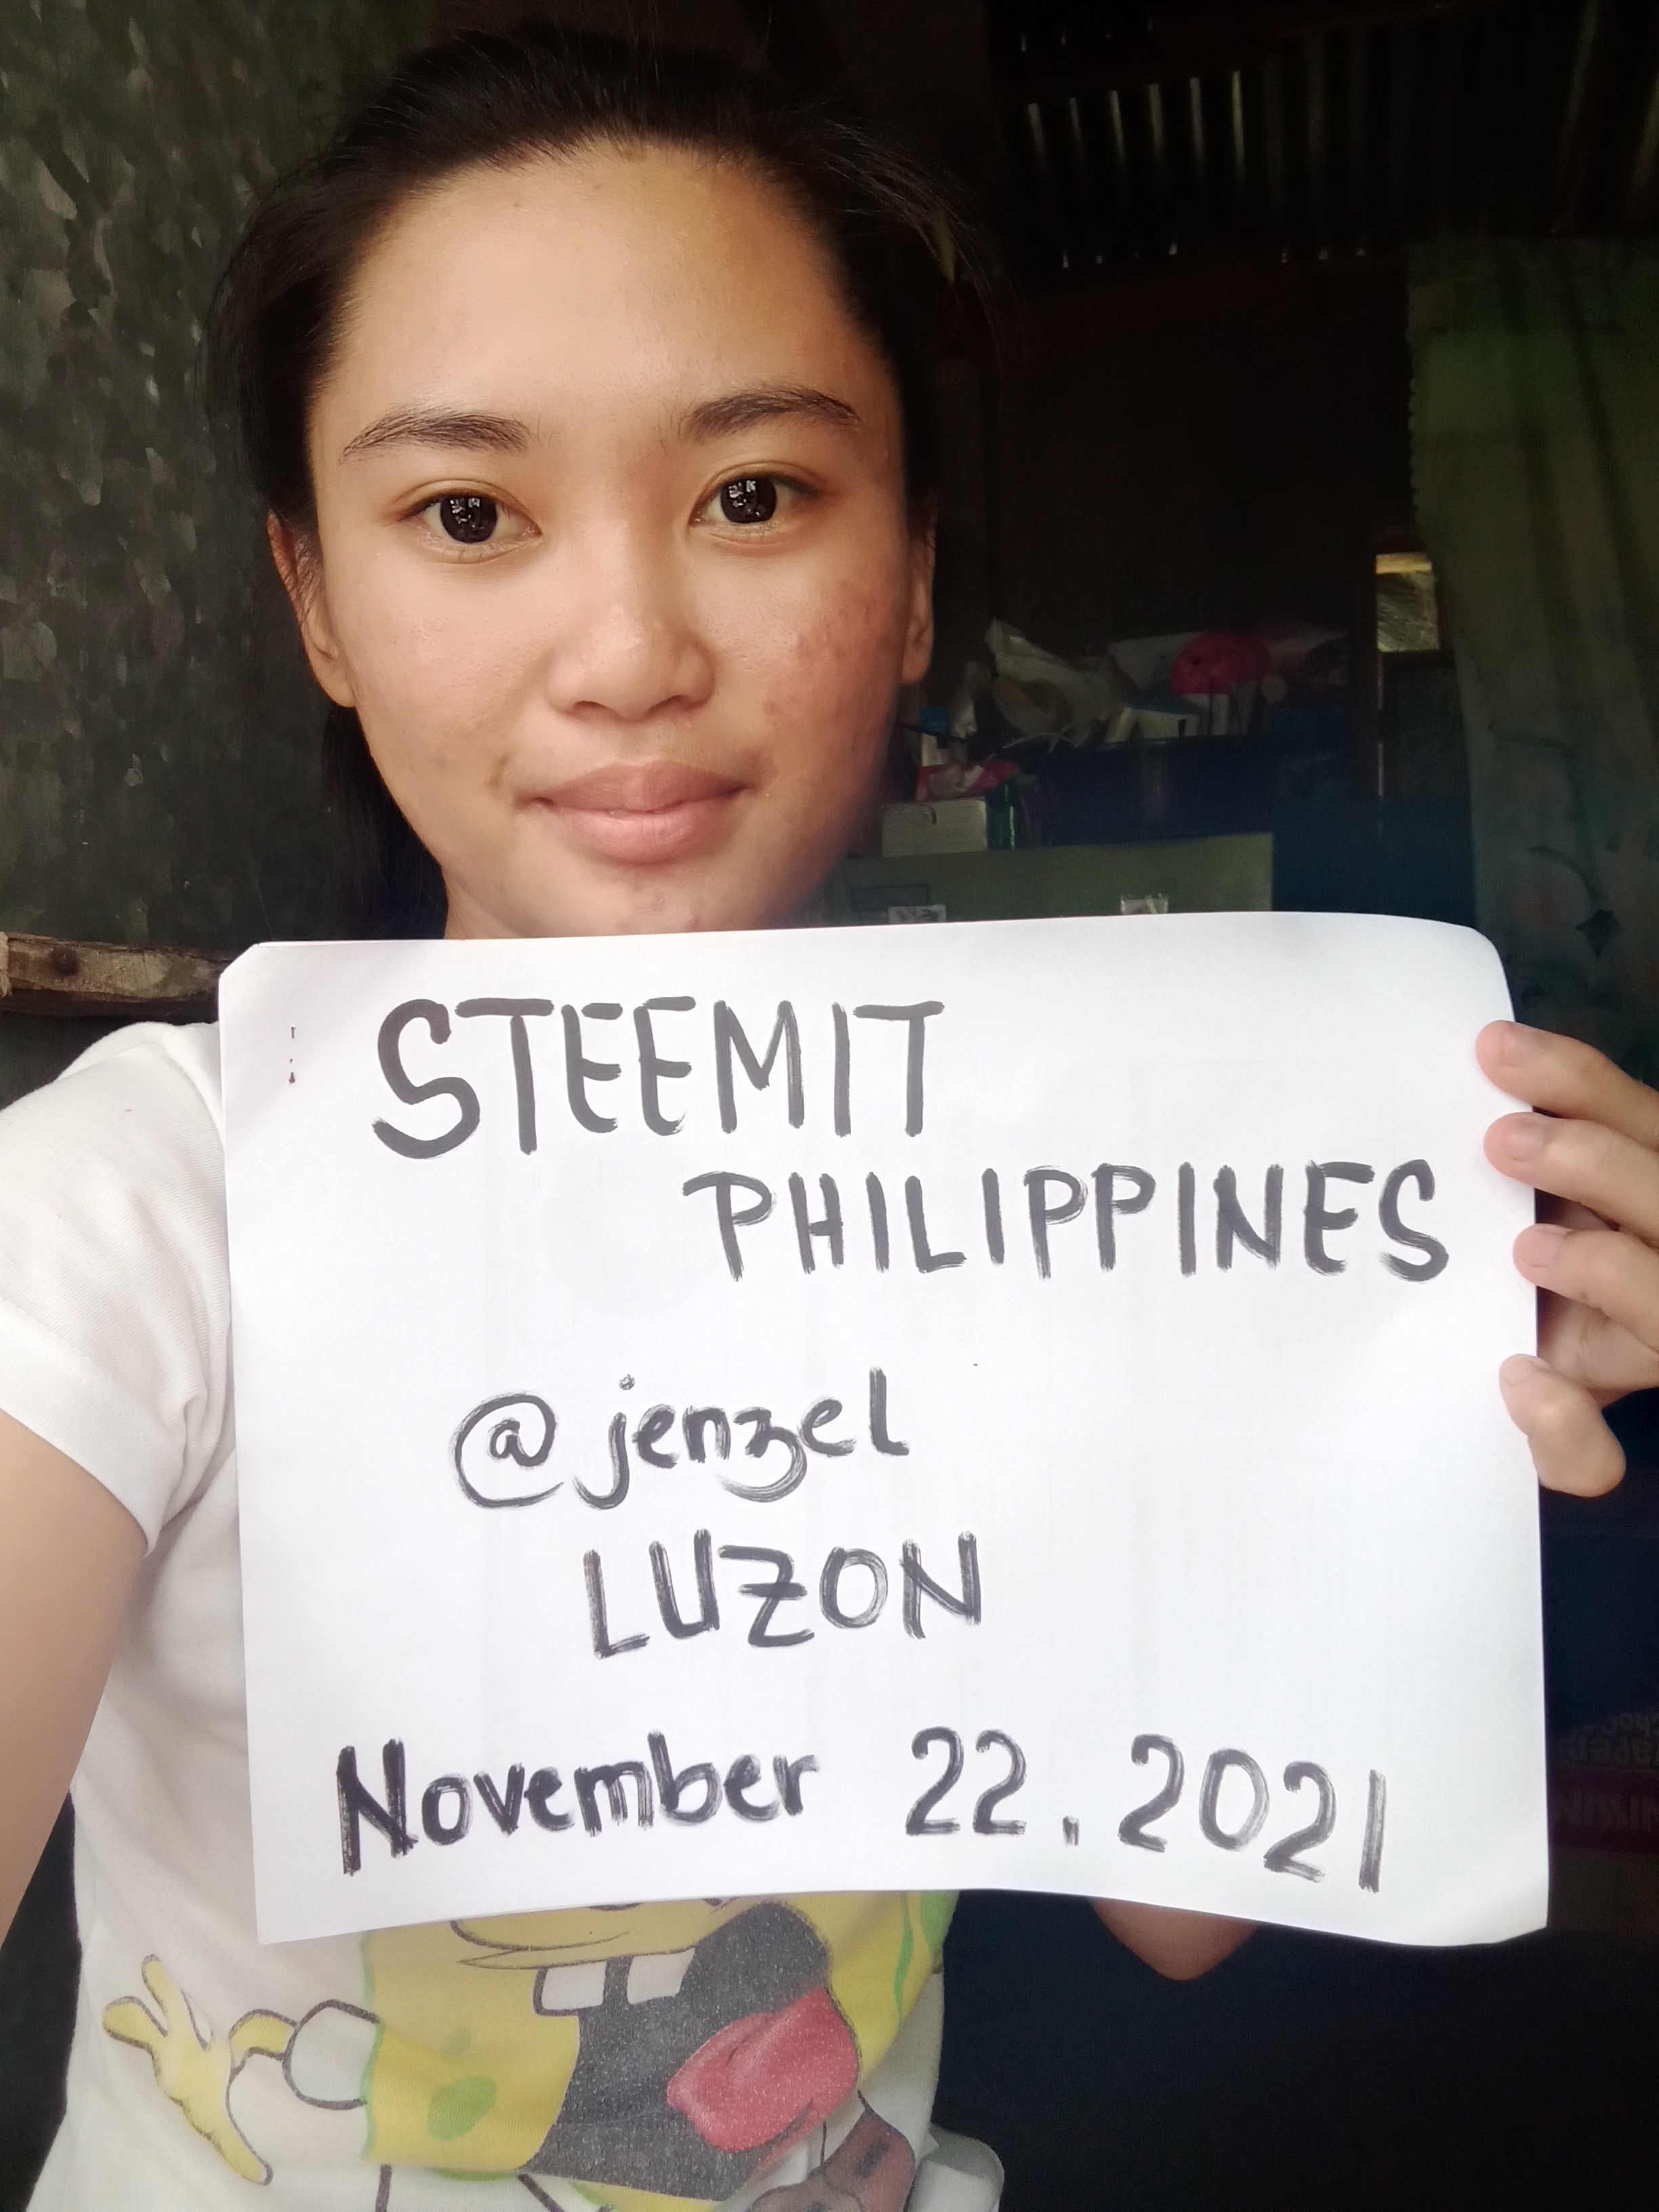 STEEMIT
PHILIPPINES
@jenzel
LUZON
November 22.2021